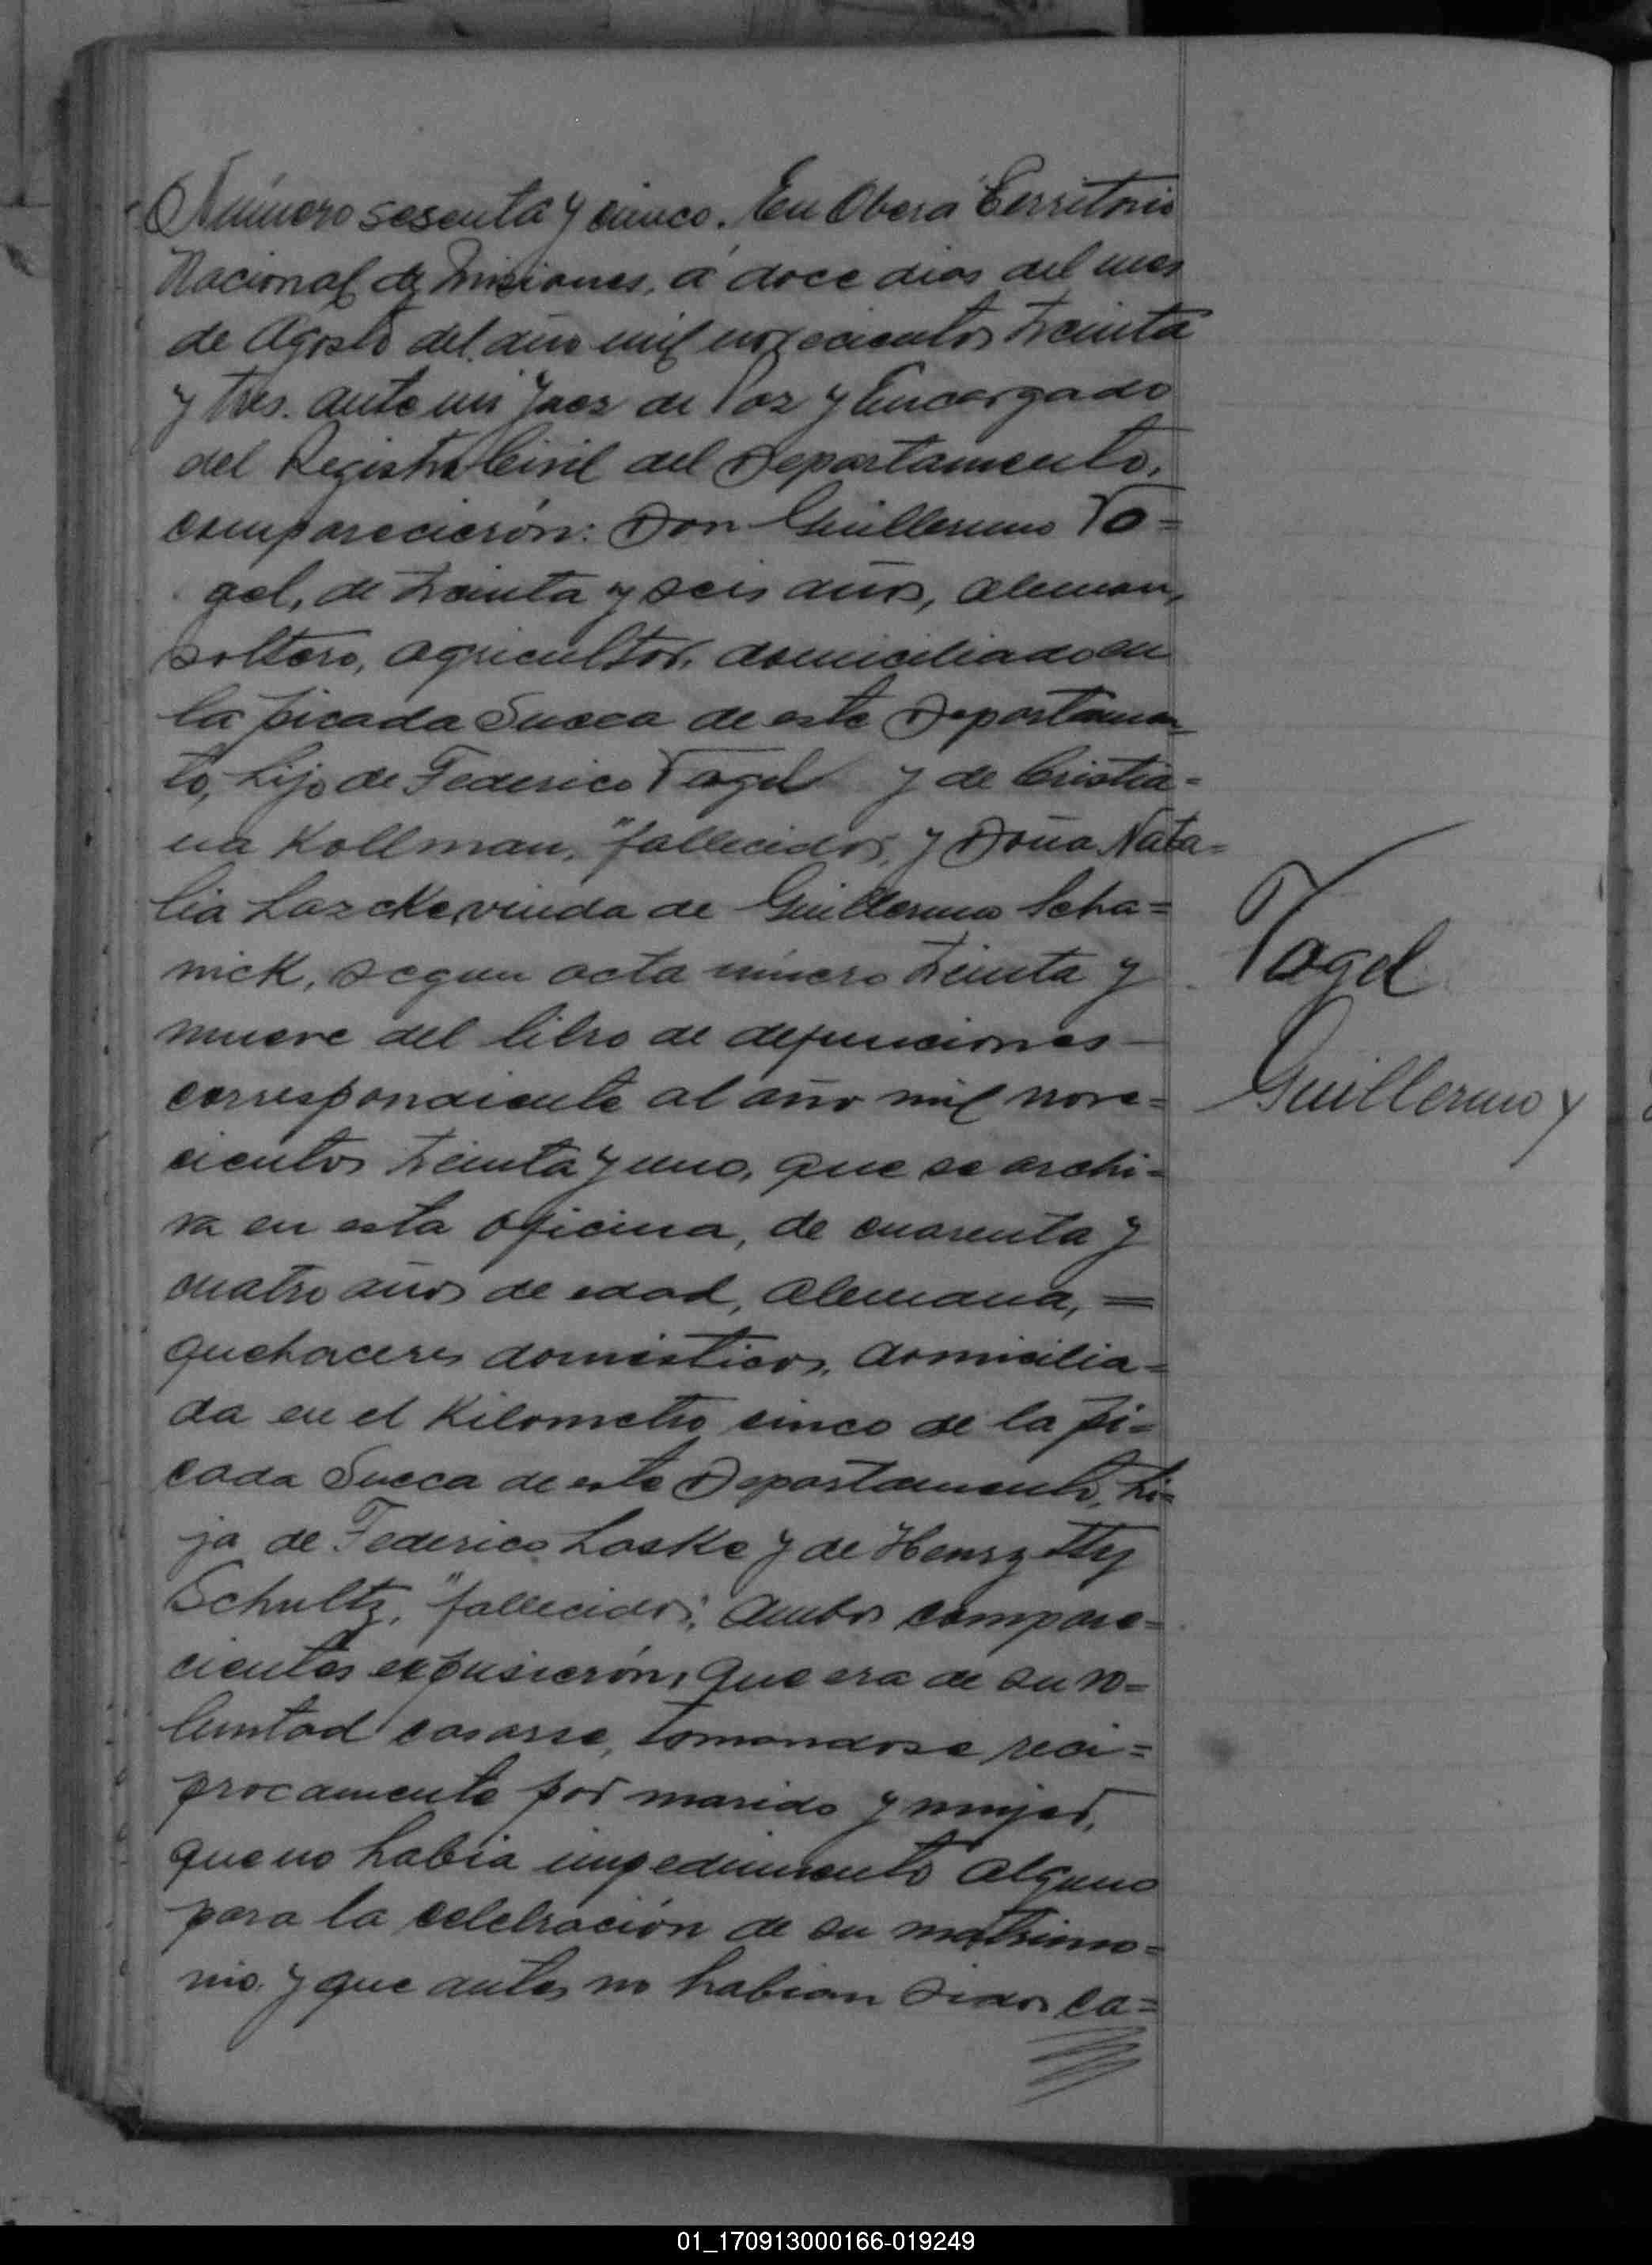 Número sesenta y cinco. En Oberá Territorio
Nacional de Misiones, á doce dias del mes
de Agosto del año mil novecientos treinta
y tres. ante mi Juez de Paz y Encargado
del Registro Civil del Departamento,
comparecierón: Don Guillermo Vo=
gel, de treinta y seis años, aleman,
soltero, agricultor, domiciliado en
la picada Sueca de este Departamen_
to, hijo de Federico Vogel y de Cristia=
na Kollman, "fallecidos", y Doña Nata=
lia Lazcke, viuda de Guillermo Scha=
nick, segun acta número treinta y
nueve del libro de defunciones —
correspondiente al año mil nove=
cientos treinta y uno, que se archi=
va en esta oficina, de cuarenta y
cuatro años de edad, alemana, =
quehaceres domésticos, domicilia=
da en el Kilometro cinco de la pi=
cada Sueca de este Departamento, hi=
ja de Federico Laske y de Henrytty
Schultz, "fallecidos"; Ambos compare=
cientes expusierón, que era de su vo=
luntad casarse, tomandose reci=
procamente por marido y mujer,
que no habia impedimento alguno
para la celebración de su matrimo=
nio. y que antes no habian sidos ca=
Vogel
Guillermo y
01_170913000166-019249